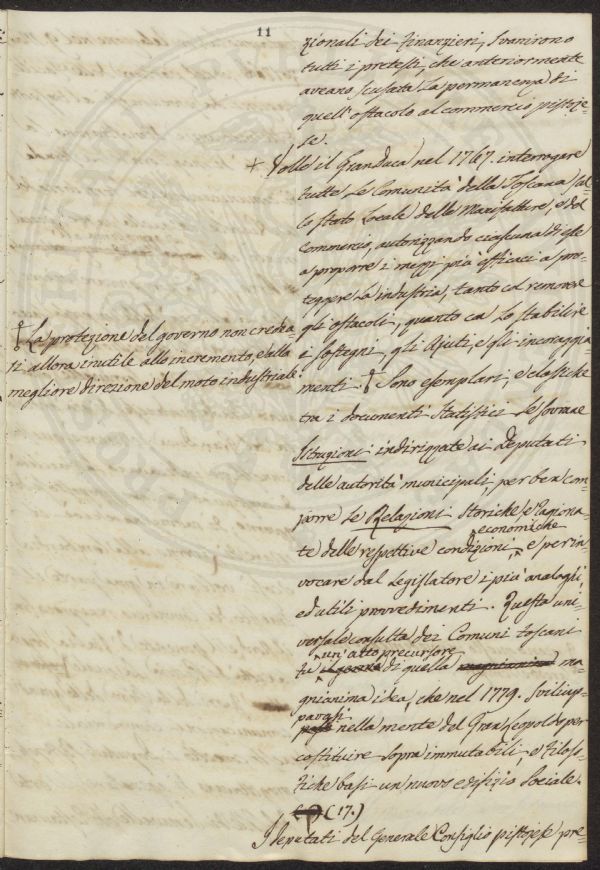 11
zionali dei Finanzieri, svanirono
tutti i pretesti, che anteriormente
aveano scusata la permanenza di
quell'ostacolo al commercio pistoje-
se.
+ Volle il GranDuca nel 1767. interrogare
tutte le Comunità della Toscana sul-
lo stato locale delle Manifatture, e del
Commercio, autorizzando ciascuna di esse
a proporre i mezzi più efficaci a pro-
teggere la industria, tanto ca remover
gli ostacoli, quanto ca lo stabilire
i sostegni, gli ajuti, e gli incoraggia-
menti. † Sono esemplari, e classiche
tra i documenti statistici le sovrane
Istruzioni indirizzate ai Deputati
delle autorità municipali, per ben com-
porre le Relazioni storiche e ragiona-
te delle respettive condizioni, economiche e per in-
vocare dal Legislatore i più analoghi,
ed utili provvedimenti. Questa uni-
versale consulta dei Comuni toscani
fu un'atto precursore di quella ma-
gnianima idea, che nel 1779. svilup-
pavasi nella mente del Gran Leopoldo per
costituire sopra immutabili, e filoso-
fiche basi un nuovo edifizio sociale.
(17.)
I Deputati del Generale Consiglio pistojese pre-
† La protezione del governo non credea-
si allora inutile allo incremento, e alla
megliore direzione del moto industriale